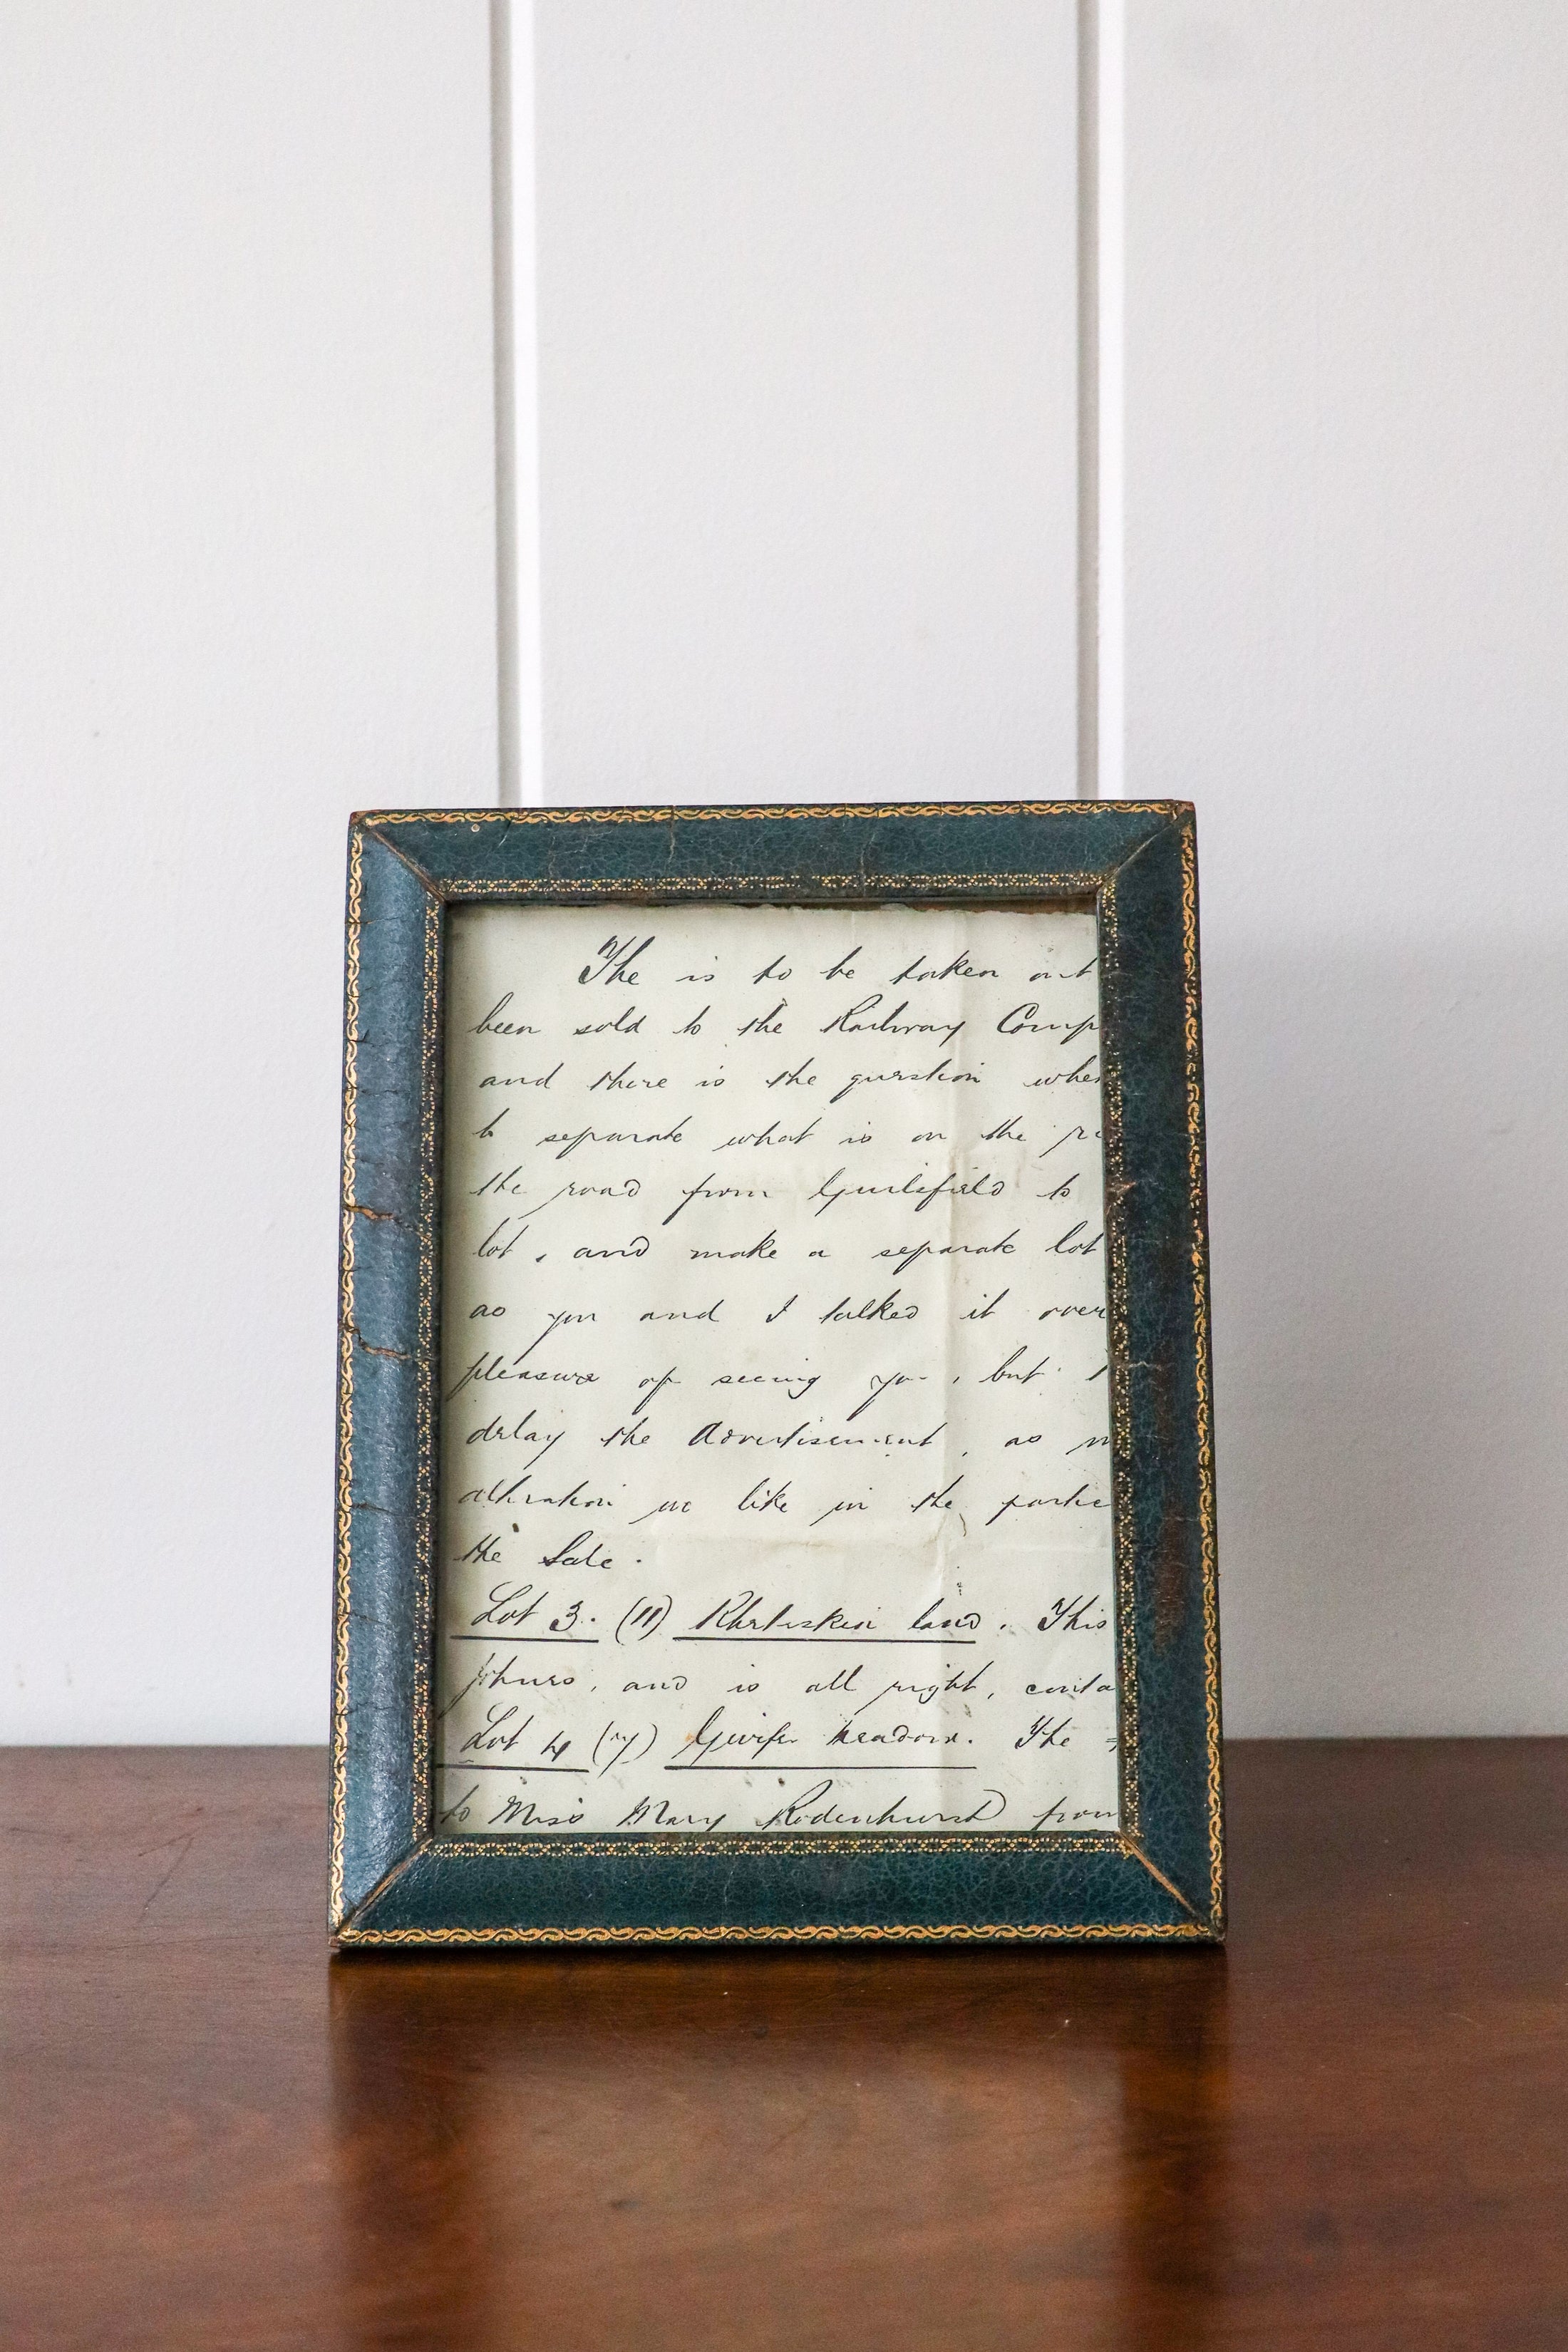 The is to be taken out
been sold to the Railway Comp
and there is the question whe
to separate what is on the
the road from Guilsfield to
lot, and make a separate lot
as you and I talked it over
pleasure of seeing you, but
delay the Advertisement, as m
alteration we like in the partic
the Sale.
Lot 3. (11) land. This
and is all right, conta
Lot 4 (7) meadow. The
to Miss Mary Rodenhurst from